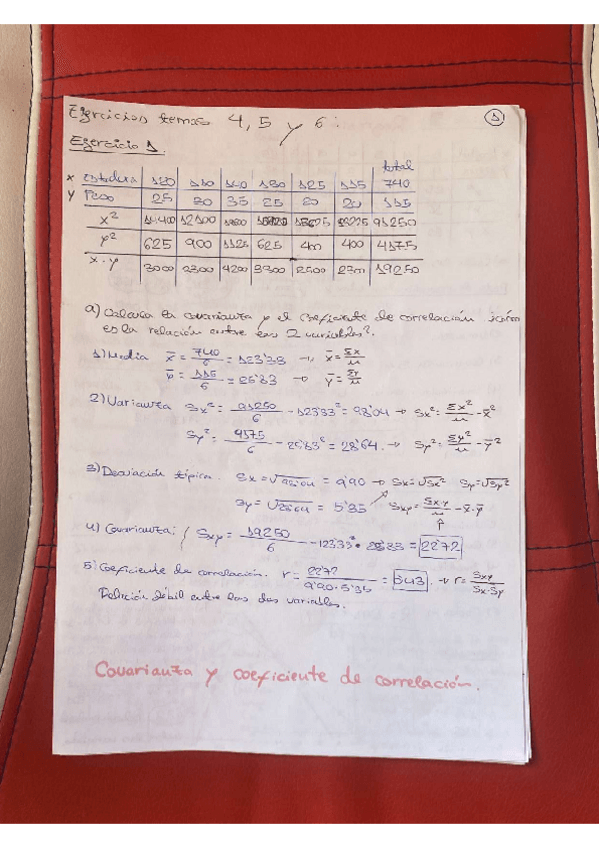 Ejercicios temas 4, 5 y 6:
1
Ejercicio 1.
total
x Estatura 120 110 140 130 125 115 740
y Peso 25 30 35 25 20 20 155
x² 14400 12100 15625 13225 91250
y² 625 900 1125 625 400 400 4175
x·y 3000 3300 4200 3300 2500 2300 19250
a) Calcula la covarianza y el coeficiente de correlación ¿cómo
es la relación entre esas 2 variables?.
1) Media x̄ = 740/6 = 123'33 → x̄ = Σx/n
ȳ = 155/6 = 25'83 → ȳ = Σy/n
2) Varianza Sx² = 91250/6 - 123'33² = 98'04 → Sx² = Σx²/n - x̄²
Sy² = 4175/6 - 25'83² = 28'64. → Sy² = Σy²/n - ȳ²
3) Desviación típica. Sx = √98'04 = 9'90 → Sx = √Sx² Sy = √Sy²
Sy = √28'64 = 5'35 Sxy = Σx·y/n - x̄·ȳ
4) Covarianza: Sxy = 19250/6 - 123'33 · 25'83 = 22'72
5) Coeficiente de correlación. r = 22'72/9'90·5'35 = 0'43. → r = Sxy/Sx·Sy
Relación débil entre las dos variables.
Covarianza y coeficiente de correlación.